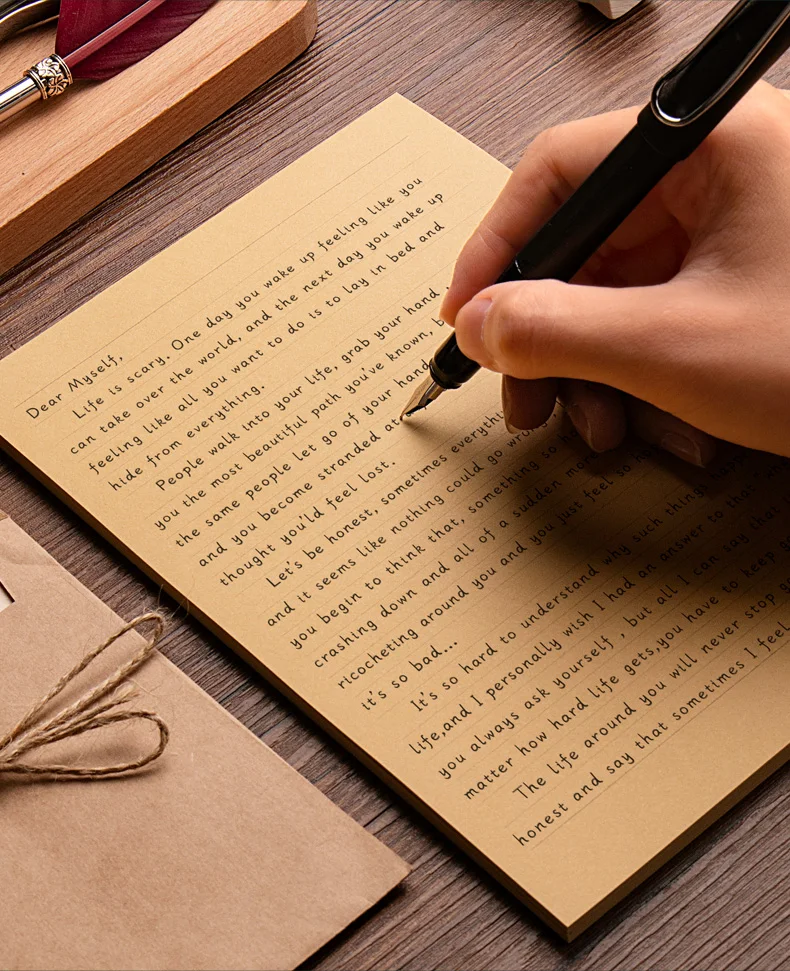 Dear Myself,
Life is scary. One day you wake up feeling like you
can take over the world, and the next day you wake up
feeling like all you want to do is to lay in bed and
hide from everything.
People walk into your life, grab your hand
you the most beautiful path you've known,
the same people let go of your hand
and you become stranded
thought you'ld feel lost.
Let's be honest, sometimes
and it seems like nothing could go
you begin to think that, something so
crashing down and all of a sudden
ricocheting around you and you just feel so
it's so bad...
It's so hard to understand why such thing
life,and I personally wish I had an answer to that
you always ask yourself , but all I can say
matter how hard life gets,you have to keep
The life around you will never stop
honest and say that sometimes I feel